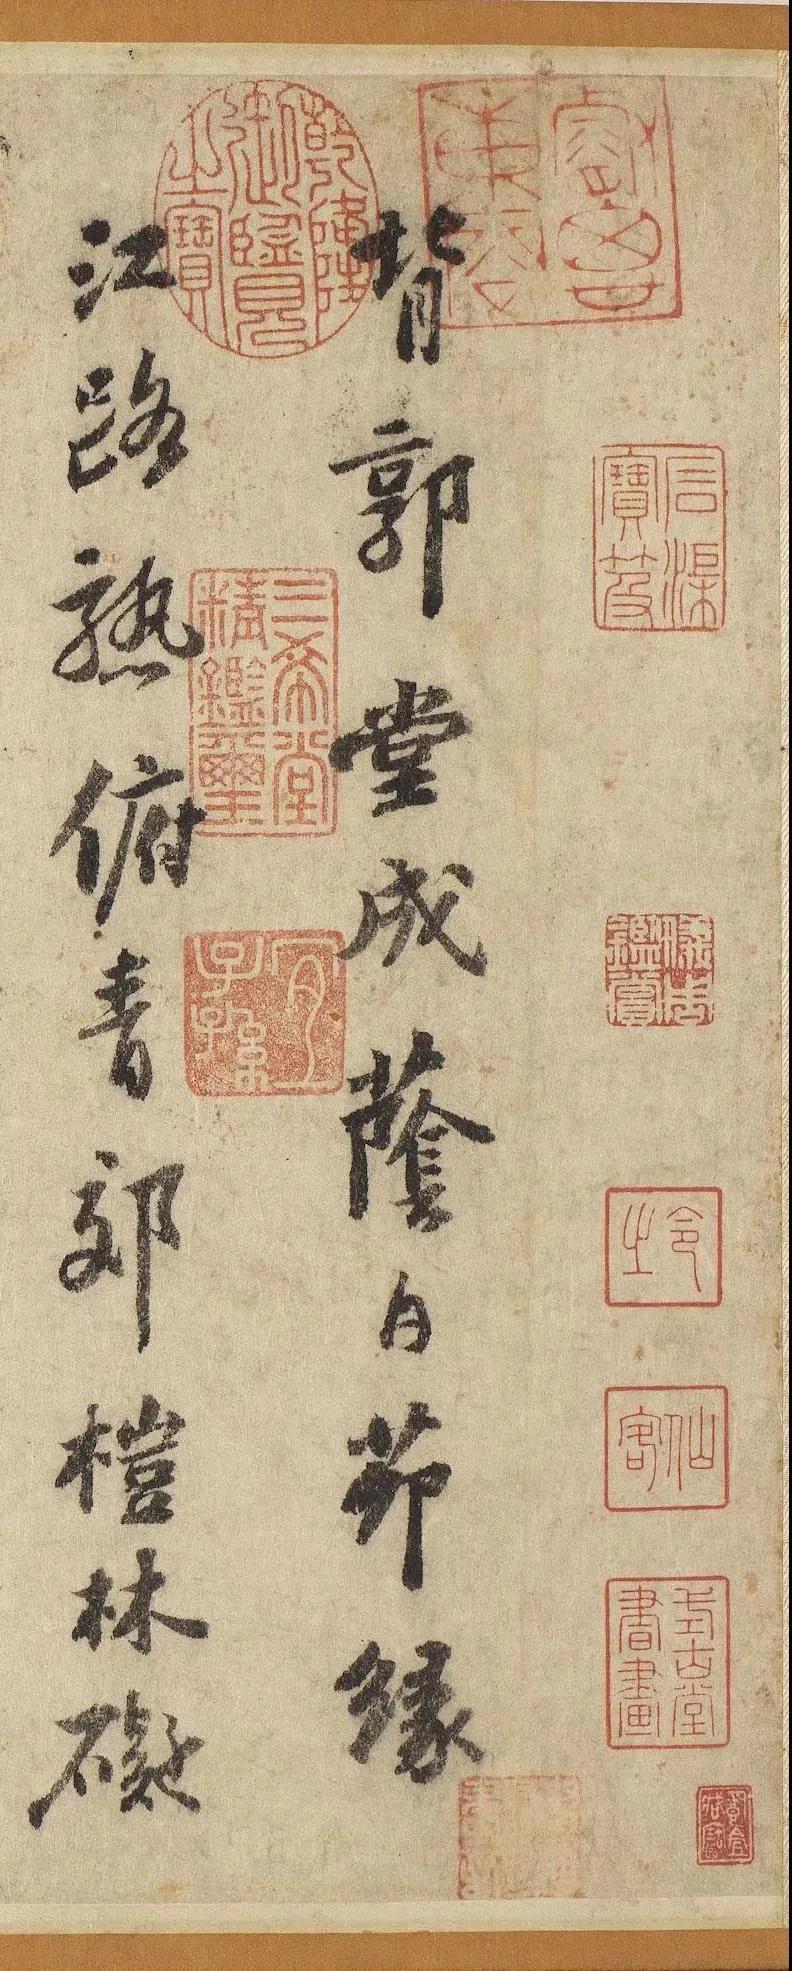 石渠寶笈
令之
仙客
式古堂書畫
背郭堂成蔭白茆緣
乾隆御覽之寶
三希堂精鑑璽
宜子孫
江路熟俯青郊榿林礙